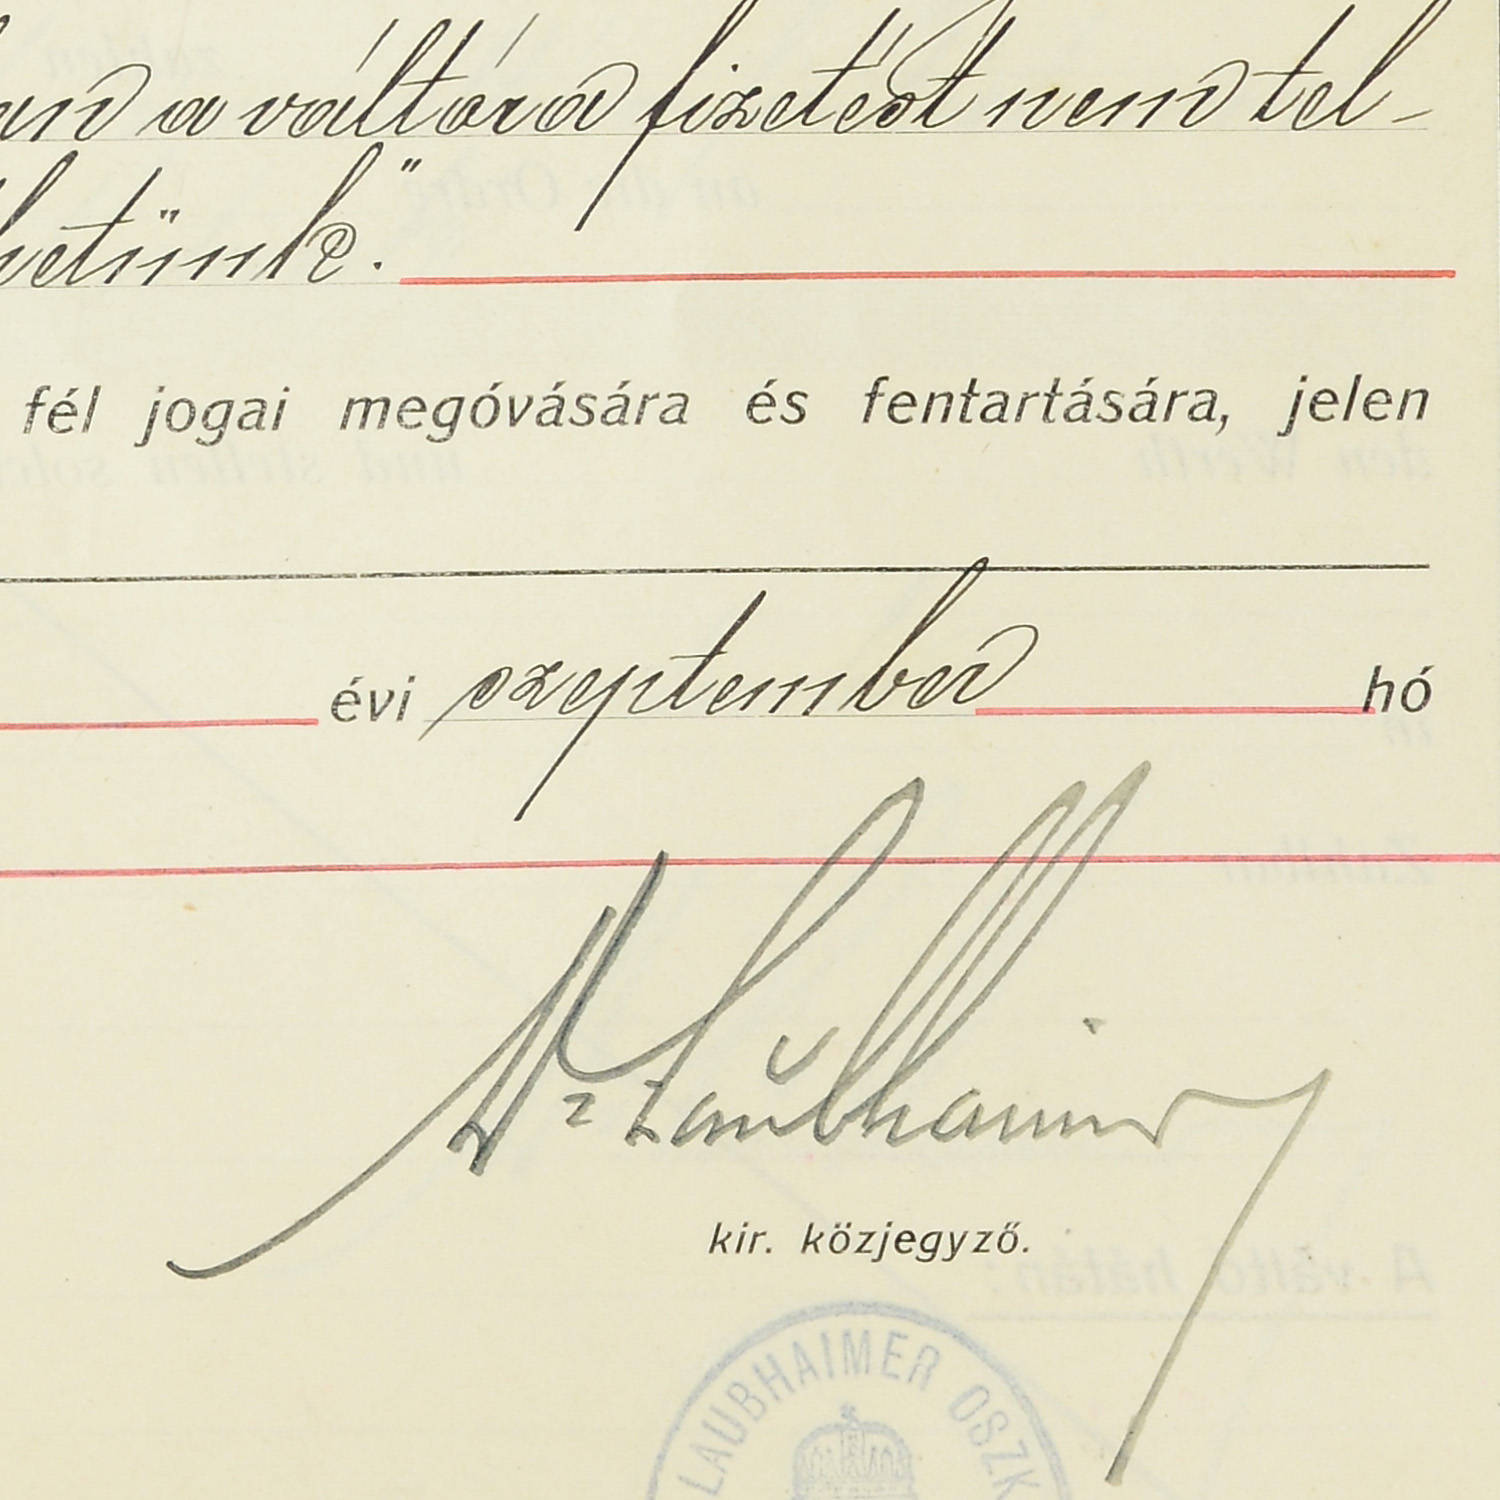 a váltóra fizetést nem tel-
hetünk."
fél jogai megóvására és fentartására, jelen
évi szeptember hó
Dr Laubhaimer
kir. közjegyző.
LAUBHAIMER OSZK